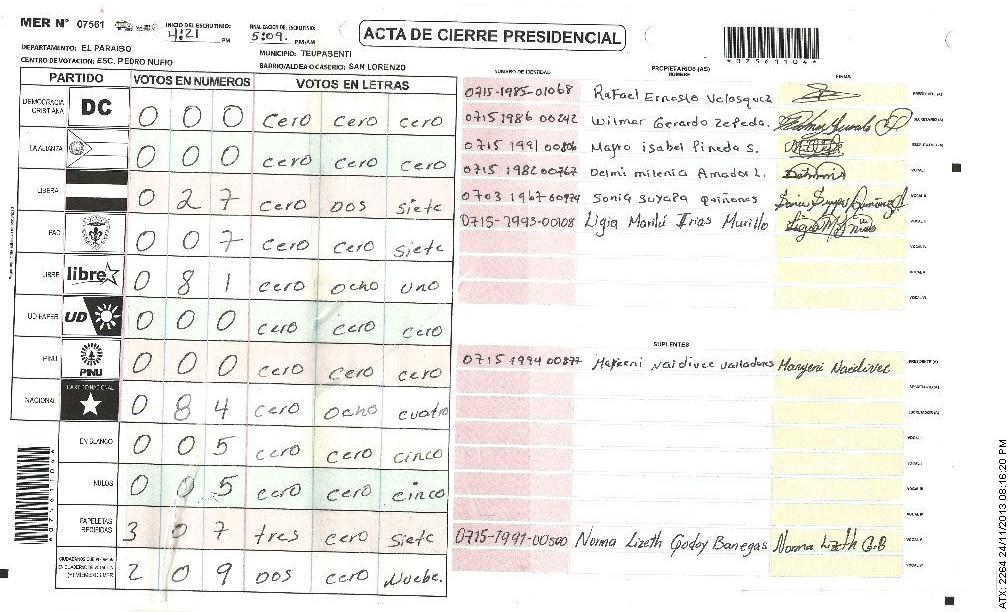 MER N° 07561 INICIO DEL ESCRUTINIO: 4:21 PM FINALIZACION DEL ESCRUTINIO: 5:09. PM/AM
ACTA DE CIERRE PRESIDENCIAL
*07561104*
DEPARTAMENTO: EL PARAISO MUNICIPIO: TEUPASENTI
CENTRO DE VOTACION: ESC. PEDRO NUFIO BARRIO/ALDEA O CASERIO: SAN LORENZO
PARTIDO VOTOS EN NUMEROS VOTOS EN LETRAS
DEMOCRACIA CRISTIANA DC 0 0 0 cero cero cero
LA ALIANZA 0 0 0 cero cero cero
LIBERAL 0 2 7 cero Dos siete
PAC 0 0 7 cero cero siete
LIBRE libre 0 8 1 cero ocho uno
UD-FAPER UD 0 0 0 cero cero cero
PINU PINU 0 0 0 cero cero cero
NACIONAL PARTIDO NACIONAL 0 8 4 cero ocho cuatro
EN BLANCO 0 0 5 cero cero cinco
NULOS 0 0 5 cero cero cinco
PAPELETAS RECIBIDAS 3 0 7 tres cero siete
2 0 9 Dos cero Nuebe.
NUMERO DE IDENTIDAD PROPIETARIOS (AS) NOMBRE FIRMA
0715-1985-01068 Rafael Ernesto Velasquez PRESIDENTE (A)
0715 1986 00242 Wilmer Gerardo Zepeda. SECRETARIO (A)
0715 1991 00806 Mayra isabel Pineda S.
0715 1982 00767 Delmi milenia Amador L. VOCAL I
0703 1967-00974 Sonia Suyapa quiñones VOCAL II
0715-1993-00108 Ligia Marilú Irias Murillo
SUPLENTES
0715 1994 00877 Naidivec Valladares Naidivec PRESIDENTE (A)
SECRETARIO (A)
ESCRUTADOR (A)
VOCAL I
0715-1991-00500 Norma Lizeth Godoy Banegas Norma Lizeth G.B
ATX: 2264 24/11/2013 08:16:20 PM